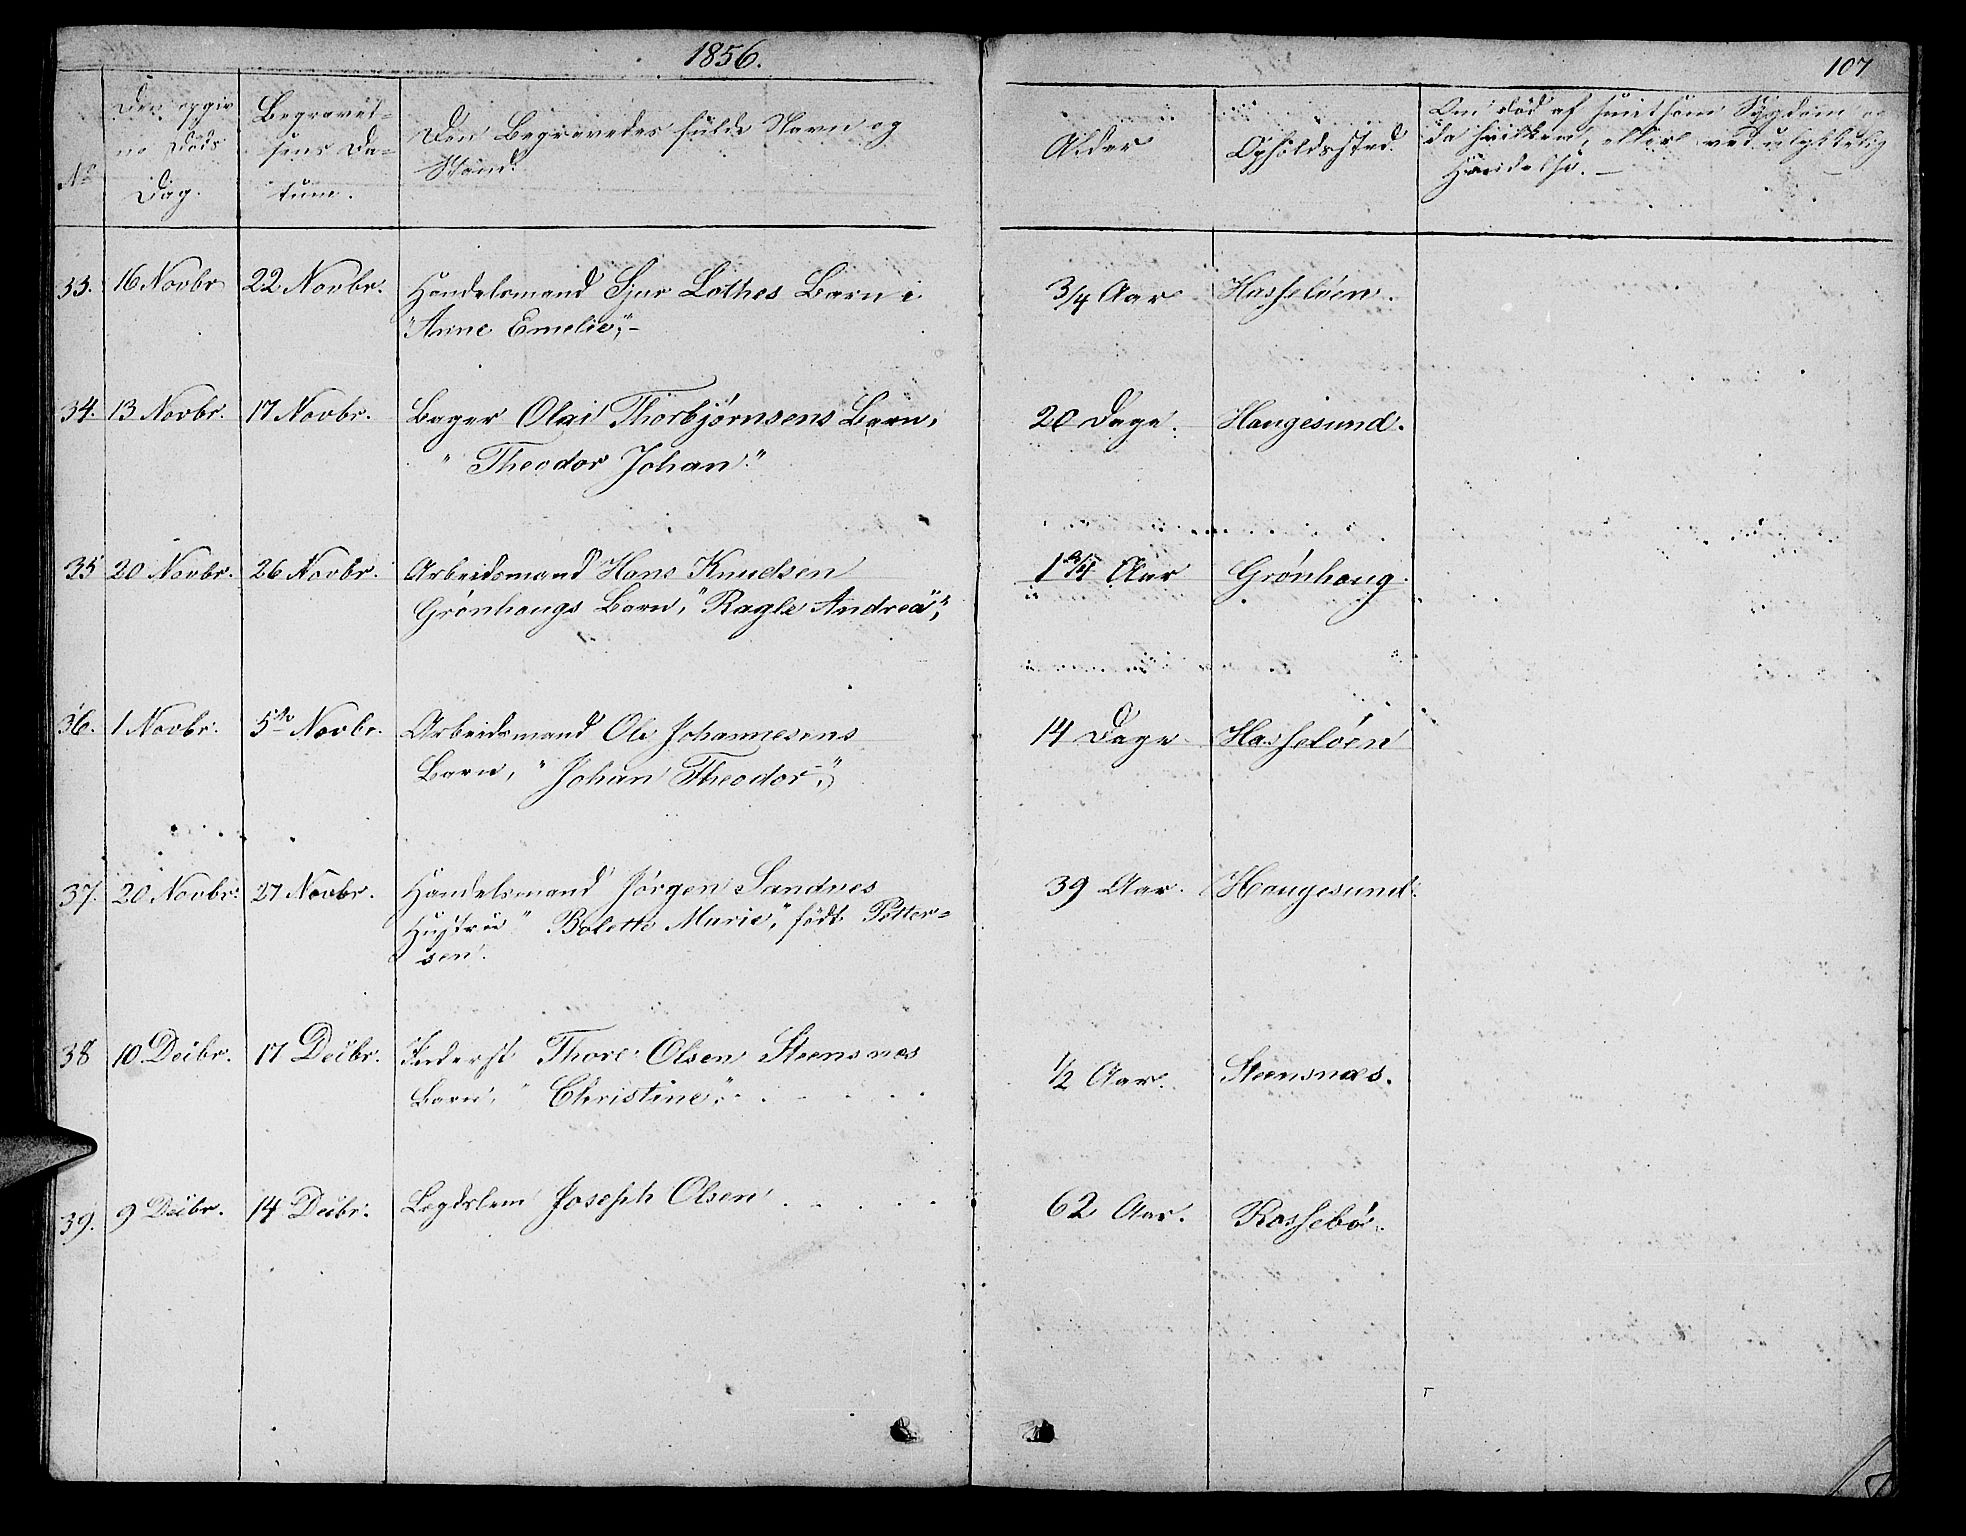 1856.
107
No
Den opgiv
ne Døds
Dag.
Begravel-
sens Da-
tum.
Den Begravedes fulde Navn og
Stand.
Alder
Opholdssted.
Om død af smitsom Sygdom og
da hvilken, eller ved ulykkelig
Hændelse.
33. 16 Novbr 22 Novbr. Handelsmand Sjur Lothes Barn 3/4 Aar Hasseløen.
"Anne Emelie",-
34. 13 Novbr. 17 Novbr. Bager Olai Thorbjørnsens Barn, 20 Dage. Haugesund.
"Theodor Johan."
35 20 Novbr. 26 Novbr. Arbeidsmand Hans Knudsen 1 3/4 Aar Grønhaug.
Grønhaugs Barn, "Ragle Andrea",
36. 1 Novbr. 5te Novbr. Arbeidsmand Ole Johannesens 14 Dage Hasseløen
Barn, "Johan Theodor",
37. 20 Novbr. 27 Novbr. Handelsmand Jørgen Sandnes 39 Aar. Haugesund.
Hustrue "Bolette Marie", født Petter-
sen.
38 10 Deibr. 17 Deibr. Inderst Thore Olsen Steensnæs 1/2 Aar. Steensnæs.
Barn, "Christine".
39. 9 Deibr. 14 Deibr. Lægdslem Joseph Olsen 62 Aar. Rossebø.